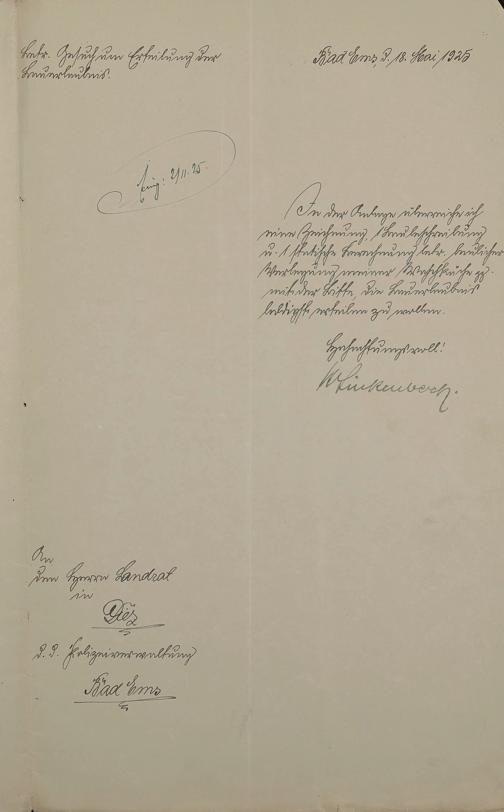 Betr. Gesuch um Erteilung der
Bauerlaubnis.
Bad Ems, d. 18. Mai 1925
2/11. 25.
In der Anlage überreiche ich
eine Zeichnung, 1 Baubeschreibung
u. 1 statische Berechnung betr. baulicher
Verlegung meiner Waschküche pp.
mit der Bitte, die Bauerlaubnis
baldigst erteilen zu wollen.
Hochachtungsvoll!
Linkenbach.
An
den Herrn Landrat
in
Diez
d. d. Polizeiverwaltung
Bad Ems